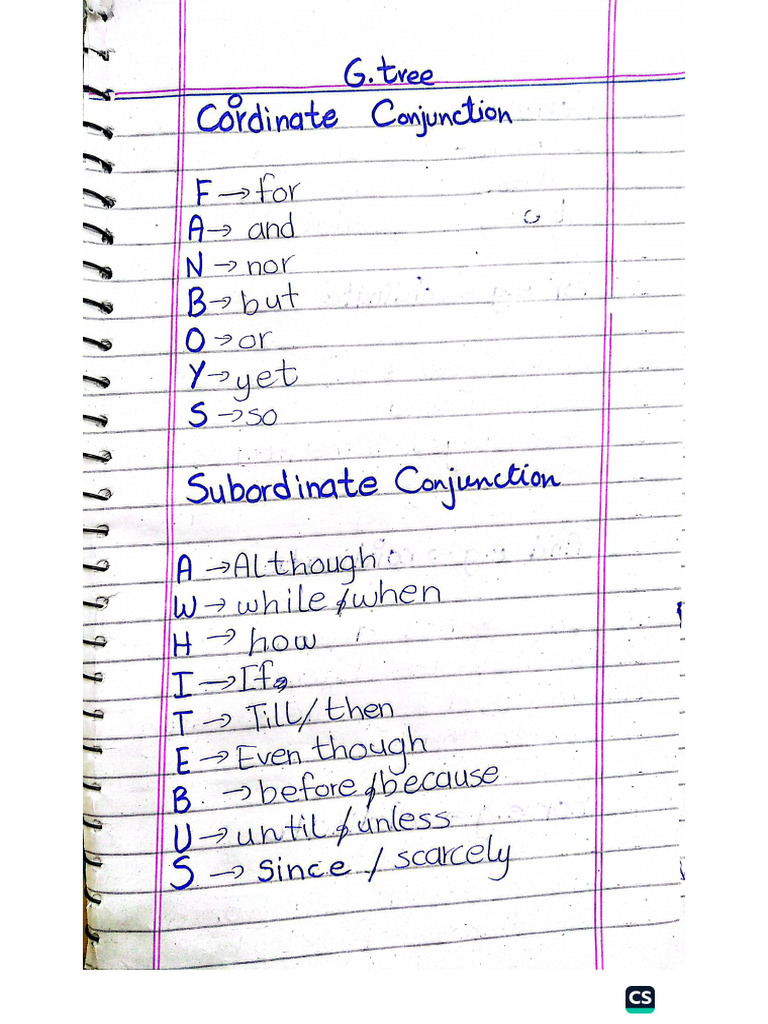 G.tree
Coordinate Conjunction
F → for
A → and
N → nor
B → but
O → or
Y → yet
S → so
Subordinate Conjunction
A → Although
W → while / when
H → how
I → If
T → Till / then
E → Even though
B → before / because
U → until / unless
S → Since / scarcely
CS